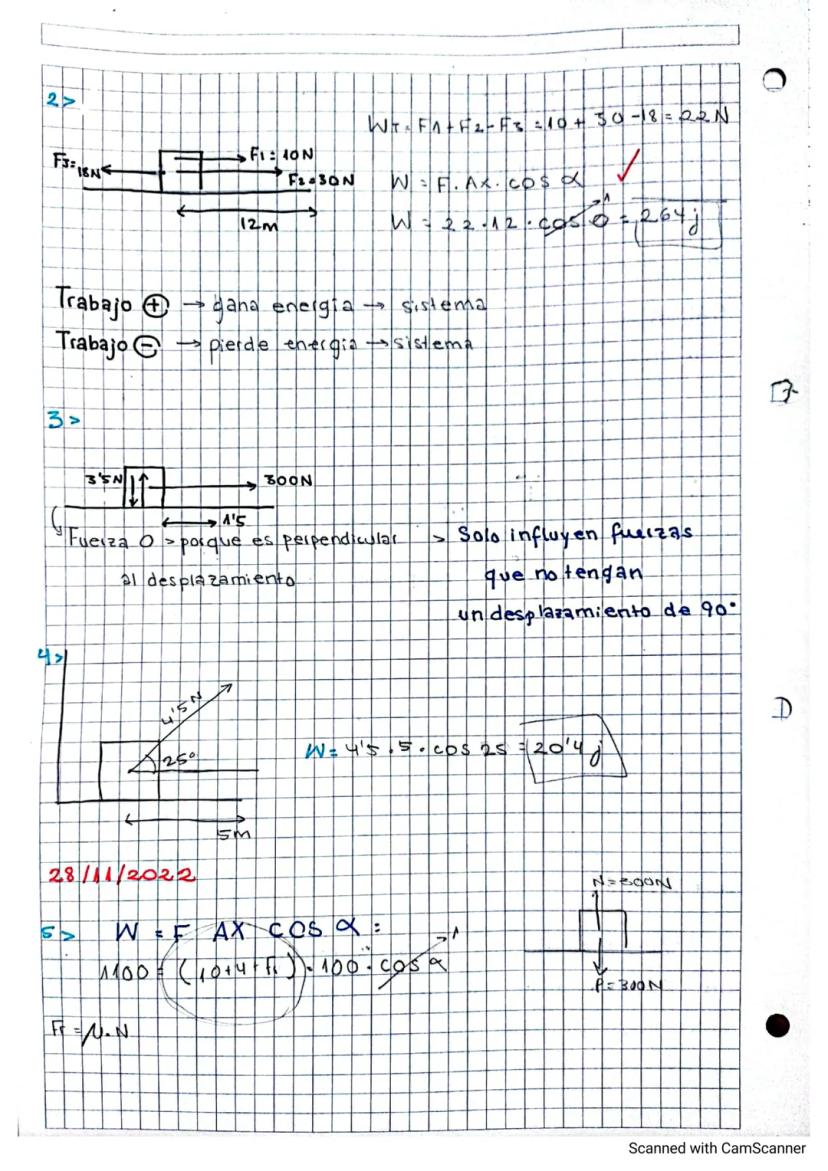 2>
WT = F1 + F2 - F3 = 10 + 30 - 18 = 22N
F3= 18N
F1 = 10N
F2 = 30N
12m
W = F. Δx. cos α
W = 22 . 12 . cos 0 = 264j
1
Trabajo ⊕ → gana energía → sistema
Trabajo ⊖ → pierde energía → sistema
3>
3'5N
300N
1'5
Fuerza 0 > porque es perpendicular
al desplazamiento
> Solo influyen fuerzas
que no tengan
un desplazamiento de 90°
4>
4'5 N
25°
5m
W = 4'5 . 5 . cos 25 = 20'4 j
28/11/2022
5> W = F ΔX COS α =
1100 = (10+4+Fr) . 100 . cos α
1
Fr = μ. N
N=300N
P=300N
Scanned with CamScanner